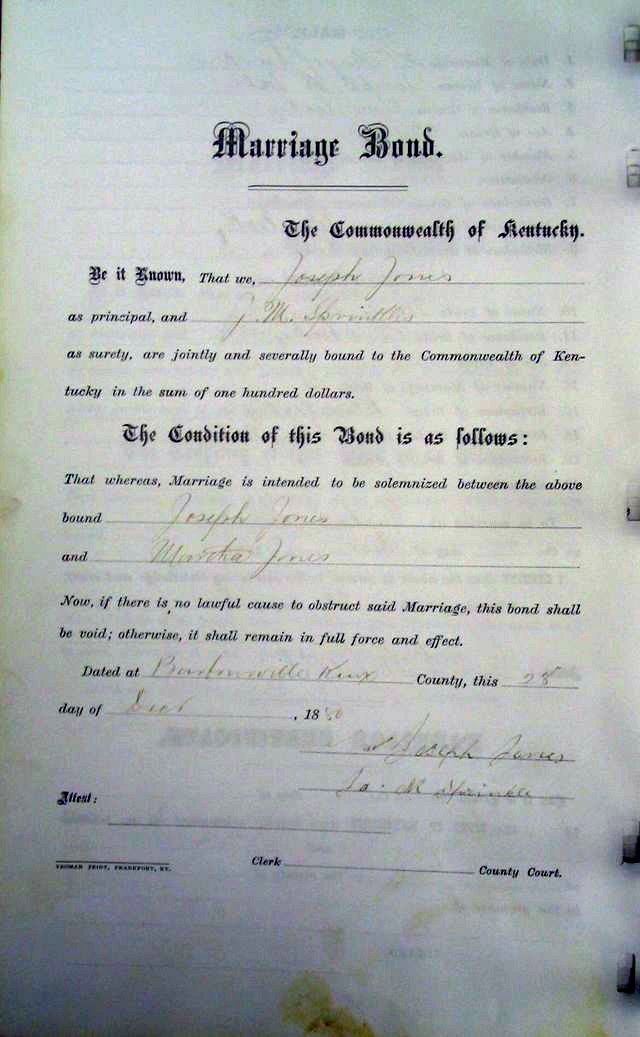 Marriage Bond.
The Commonwealth of Kentucky.
Be it Known, That we, Joseph Jones
as principal, and J. M. Sprinkles
as surety, are jointly and severally bound to the Commonwealth of Ken-
tucky in the sum of one hundred dollars.
The Condition of this Bond is as follows:
That whereas, Marriage is intended to be solemnized between the above
bound Joseph Jones
and Martha Jones
Now, if there is no lawful cause to obstruct said Marriage, this bond shall
be void; otherwise, it shall remain in full force and effect.
Dated at Barbourville Knox County, this 28
day of , 1880
Joseph Jones
M Sprinkle
Attest:
Clerk County Court.
YEOMAN PRINT, FRANKFORT, KY.